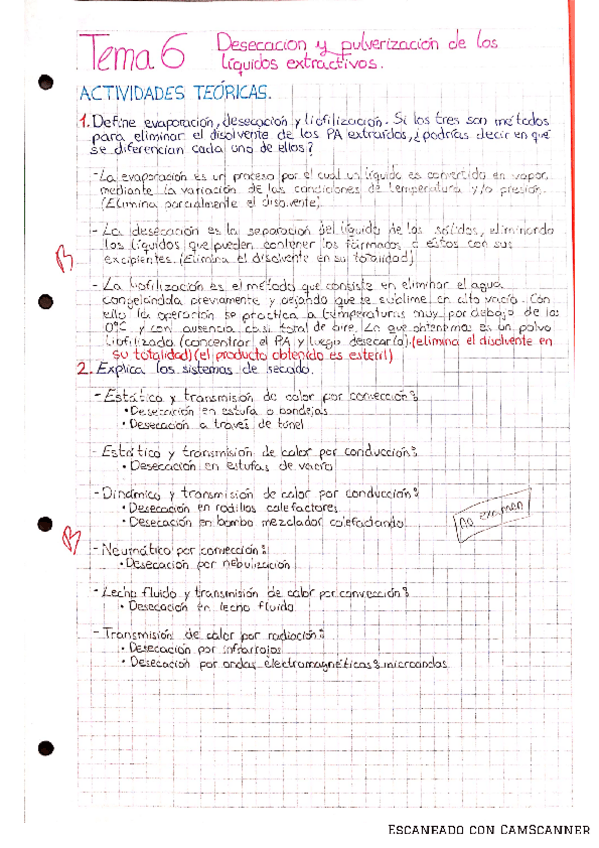 Tema 6 Desecacion y pulverización de los
líquidos extractivos.
ACTIVIDADES TEÓRICAS.
1. Define evaporación, desecación y liofilización. Si los tres son métodos
para eliminar el disolvente de los PA extraídos, ¿podrías decir en qué
se diferencian cada uno de ellos?
- La evaporación es un proceso por el cual un líquido es convertido en vapor,
mediante la variación de las condiciones de temperatura y/o presión.
(Elimina parcialmente el disolvente)
- La desecación es la separación del líquido de los sólidos, eliminando
los líquidos que pueden contener los fármacos o estos con sus
excipientes. (Elimina el disolvente en su totalidad)
B
- La liofilización es el método que consiste en eliminar el agua
congelándola previamente y dejando que se sublime en alto vacío. Con
ello la operación se practica a temperaturas muy por debajo de los
0ºC y con ausencia casi total de aire. Lo que obtenemos es un polvo
liofilizado (concentrar el PA y luego desecarlo). (elimina el disolvente en
su totalidad) (el producto obtenido es estéril)
2. Explica los sistemas de secado.
- Estático y transmisión de calor por convección:
• Desecación en estufa o bandejas
• Desecación a través de túnel
- Estático y transmisión de calor por conducción:
• Desecación en estufas de vacío
- Dinámico y transmisión de calor por conducción:
• Desecación en rodillos calefactores
• Desecación en bombo mezclador calefactando
no examen
B
- Neumático por convección:
• Desecación por nebulización
- Lecho fluido y transmisión de calor por convección:
• Desecación en lecho fluido
- Transmisión de calor por radiación:
• Desecación por infrarrojos
• Desecación por ondas electromagnéticas: microondas
ESCANEADO CON CAMSCANNER